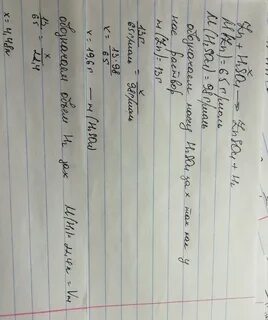 x
Zn + H₂SO₄ → ZnSO₄ + H₂
M(Zn) = 65 г/моль
M(H₂SO₄) = 98 г/моль
обозначаем массу H₂SO₄ за x так как у
нас раствор
m(Zn) = 13 г
13г / 65г/моль = x / 98г/моль
x = 13·98 / 65
x = 19,6 г — m(H₂SO₄)
обозначаем объём H₂ за x M(H₂) = 22,4 л = Vm
13 / 65 = x / 22,4
x = 4,48 л